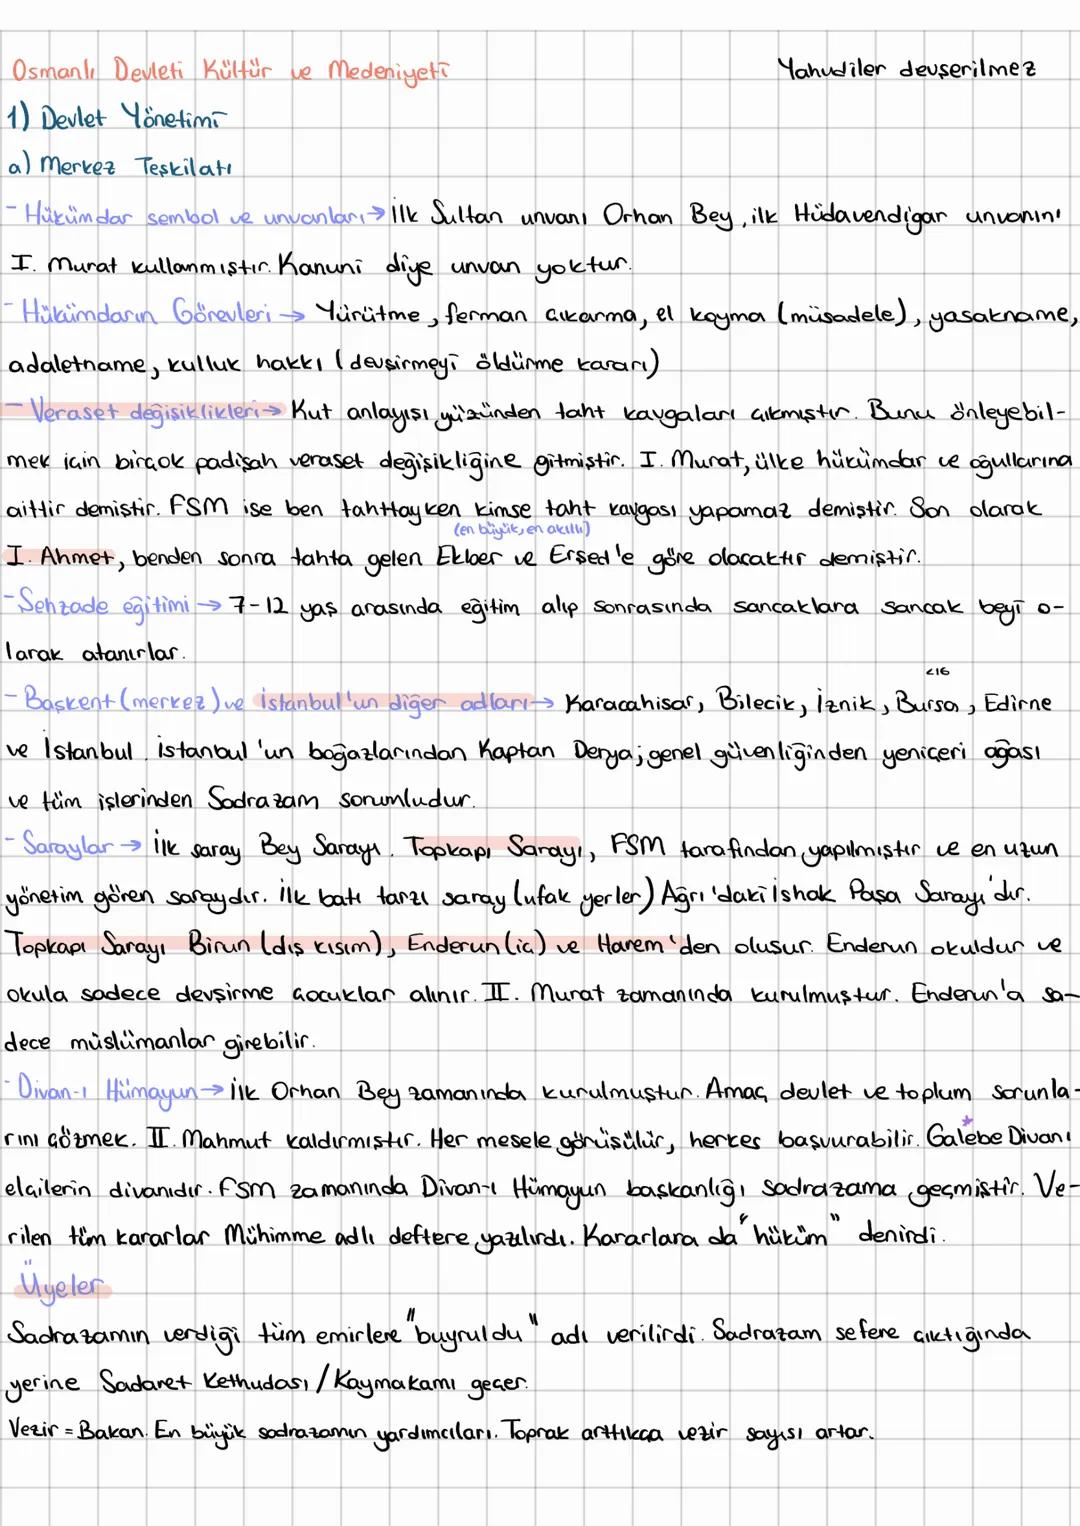 Osmanlı Devleti Kültür ve Medeniyeti
Yahudiler devşerilmez
1) Devlet Yönetimi
a) Merkez Teşkilatı
- Hükümdar sembol ve unvanları → İlk Sultan unvanı Orhan Bey, ilk Hüdavendigar unvanını
I. Murat kullanmıştır. Kanuni diye unvan yoktur.
- Hükümdarın Görevleri → Yürütme, ferman çıkarma, el koyma (müsadele), yasakname,
adaletname, kulluk hakkı (devşirmeyi öldürme kararı)
- Veraset değişiklikleri → Kut anlayışı yüzünden taht kavgaları çıkmıştır. Bunu önleyebil-
mek için birçok padişah veraset değişikliğine gitmiştir. I. Murat, ülke hükümdar ve oğullarına
aittir demiştir. FSM ise ben tahttayken kimse taht kavgası yapamaz demiştir. Son olarak
(en büyük, en akıllı)
I. Ahmet, benden sonra tahta gelen Ekber ve Erşed'e göre olacaktır demiştir.
- Şehzade eğitimi → 7-12 yaş arasında eğitim alıp sonrasında sancaklara sancak beyi o-
larak atanırlar.
<16
- Başkent (merkez) ve İstanbul'un diğer adları → Karacahisar, Bilecik, İznik, Bursa, Edirne
ve İstanbul. İstanbul'un boğazlarından Kaptan Derya; genel güvenliğinden yeniçeri ağası
ve tüm işlerinden Sadrazam sorumludur.
- Saraylar → İlk saray Bey Sarayı. Topkapı Sarayı, FSM tarafından yapılmıştır ve en uzun
yönetim gören saraydır. İlk batı tarzı saray (ufak yerler) Ağrı'daki İshak Paşa Sarayı'dır.
Topkapı Sarayı Birun (dış kısım), Enderun (iç) ve Harem'den oluşur. Enderun okuldur ve
okula sadece devşirme çocuklar alınır. II. Murat zamanında kurulmuştur. Enderun'a sa-
dece müslümanlar girebilir.
- Divan-ı Hümayun → İlk Orhan Bey zamanında kurulmuştur. Amaç devlet ve toplum sorunla-
rını çözmek. II. Mahmut kaldırmıştır. Her mesele görüşülür, herkes başvurabilir. Galebe Divanı
elçilerin divanıdır. FSM zamanında Divan-ı Hümayun başkanlığı sadrazama geçmiştir. Ve-
rilen tüm kararlar Mühimme adlı deftere yazılırdı. Kararlara da "hüküm" denirdi.
Üyeler
Sadrazamın verdiği tüm emirlere "buyruldu" adı verilirdi. Sadrazam sefere çıktığında
yerine Sadaret Kethudası / Kaymakamı geçer.
Vezir = Bakan. En büyük sadrazamın yardımcıları. Toprak arttıkça vezir sayısı artar.